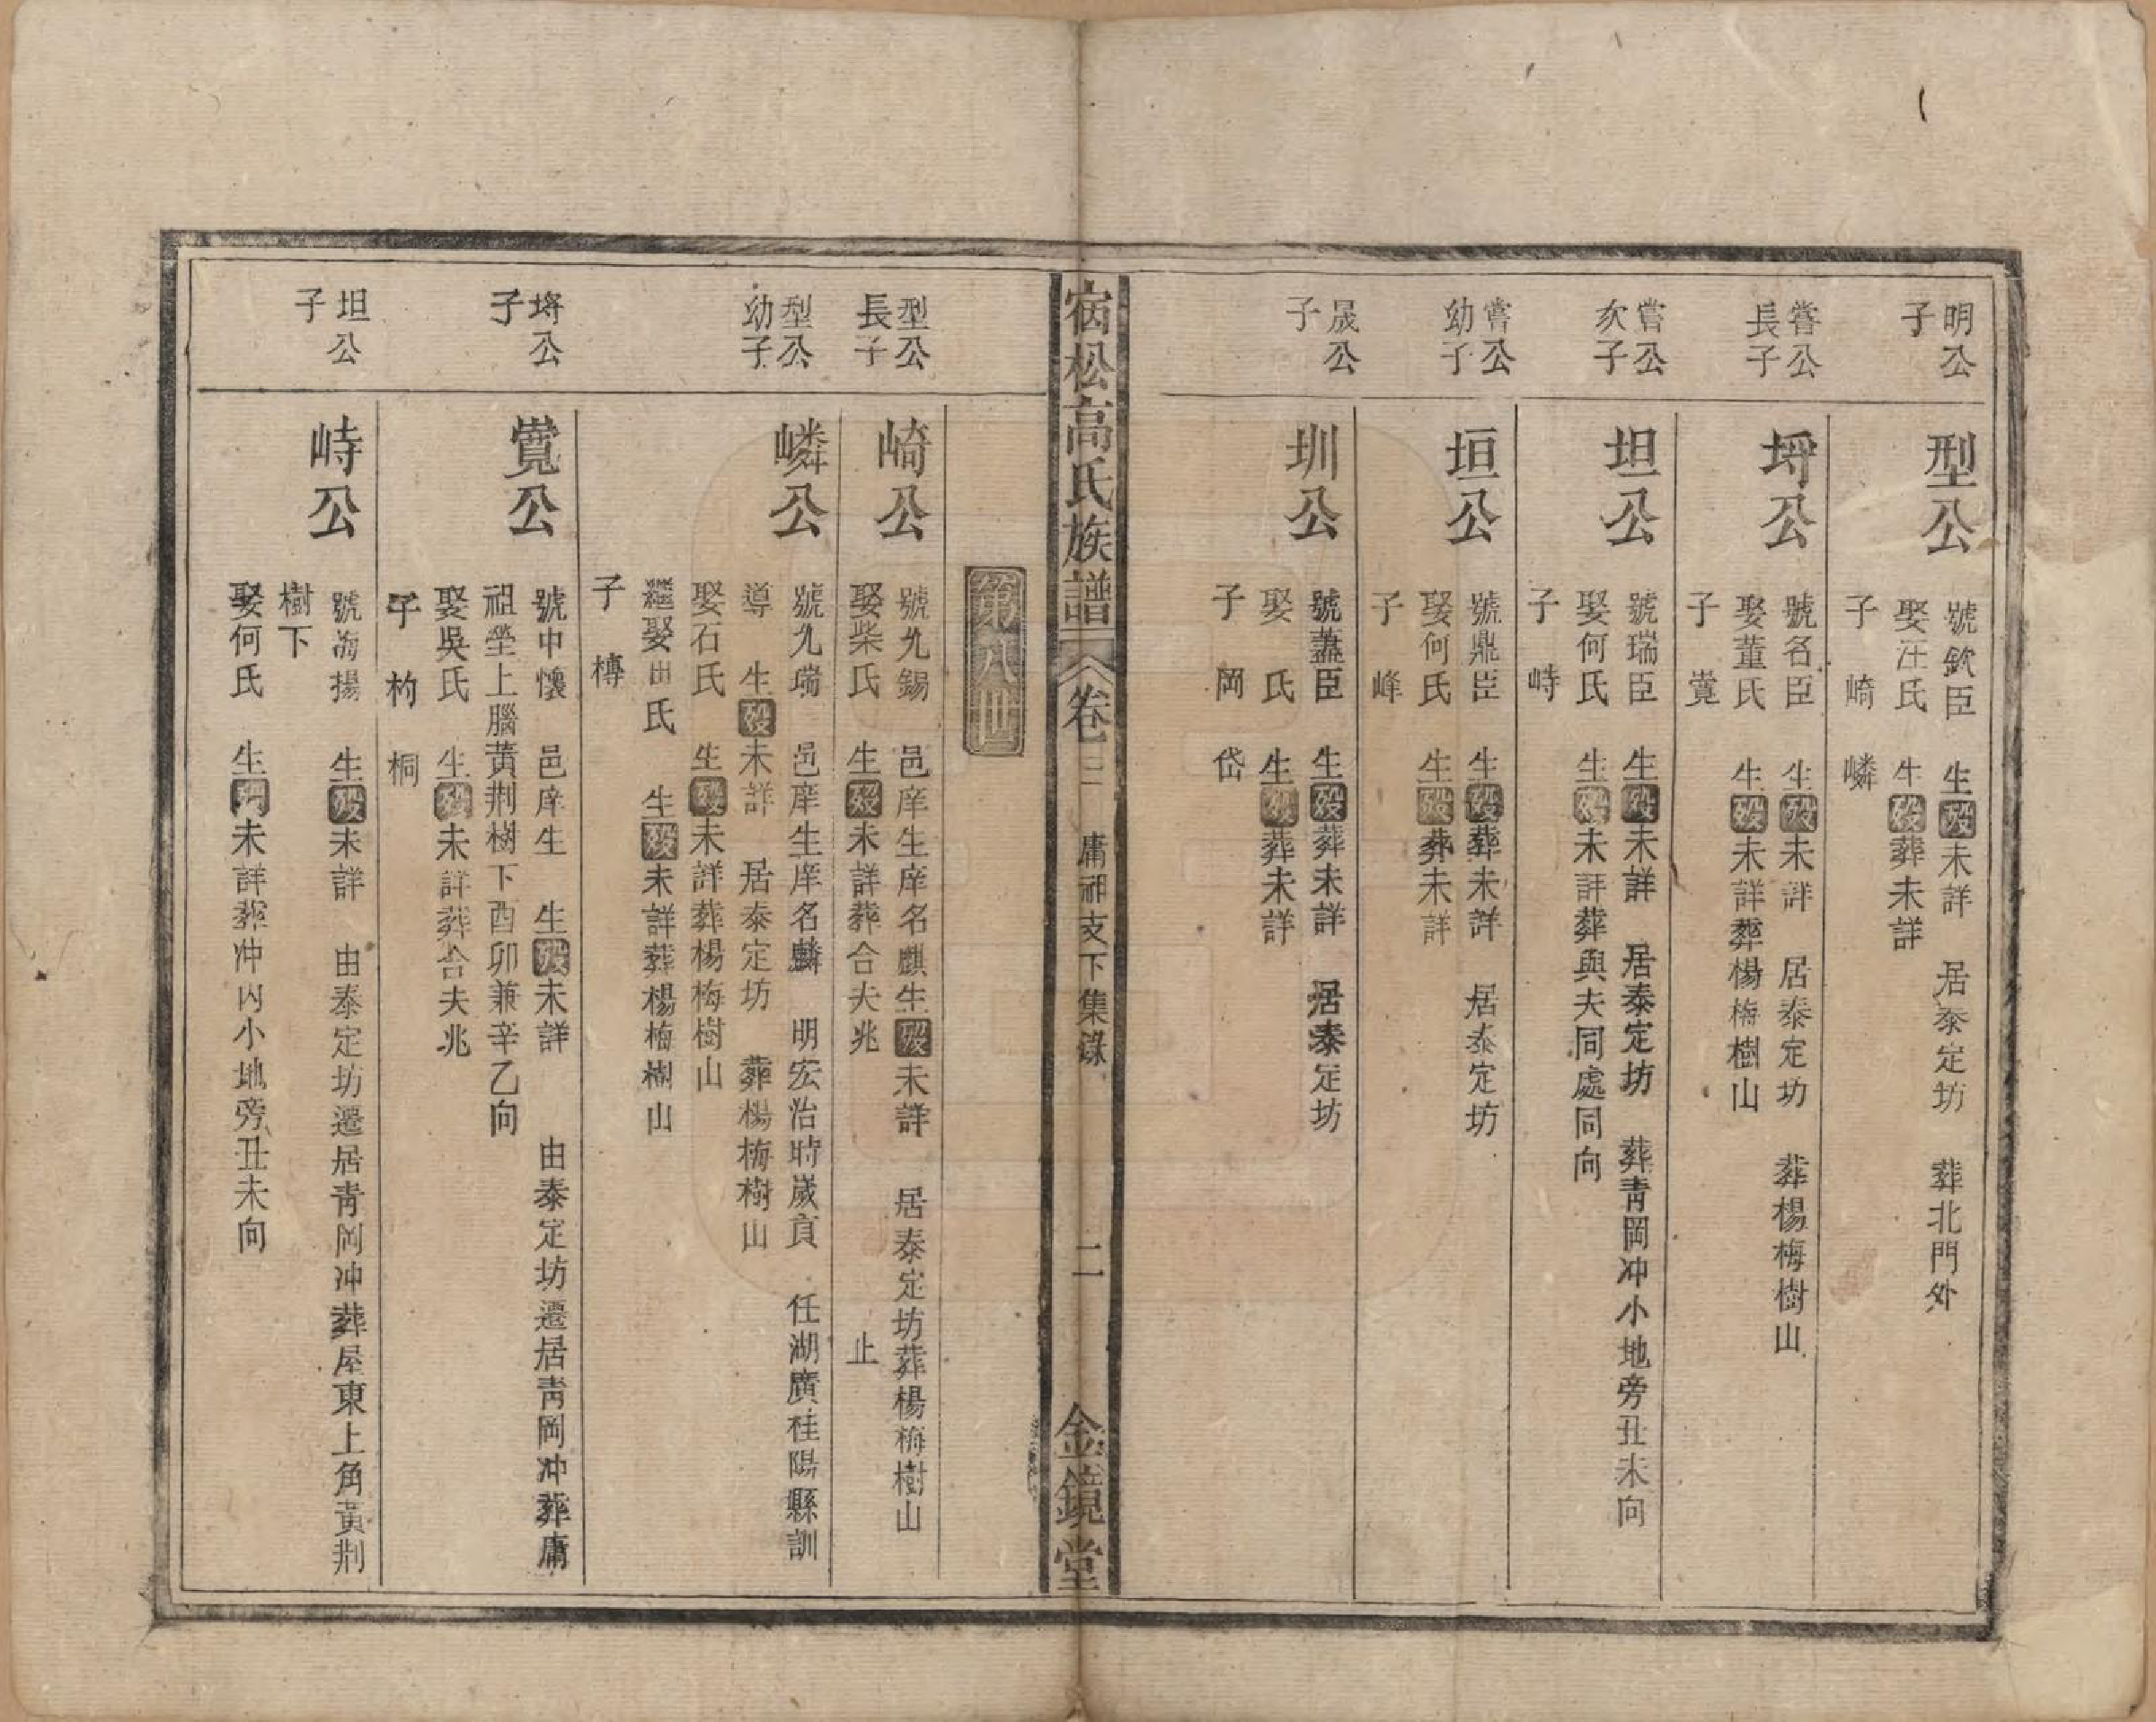 明公
子
型公
號欽臣 生歿未詳 居泰定坊 葬北門外
娶汪氏 生歿葬未詳
子 崎 嶙
嘗公
長子
埒公
號名臣 生歿未詳 居泰定坊 葬楊梅樹山
娶董氏 生歿未詳葬楊梅樹山
子 覺
嘗公
次子
坦公
號瑞臣 生歿未詳 居泰定坊 葬青岡冲小地旁丑未向
娶何氏 生歿未詳葬與夫同處同向
子 峙
嘗公
幼子
垣公
號鼎臣 生歿葬未詳 居泰定坊
娶何氏 生歿葬未詳
子 峰
晟公
子
圳公
號藎臣 生歿葬未詳 居泰定坊
娶 氏 生歿葬未詳
子 岡 岱
宿松高氏族譜 卷三 庸祖支下集錄 二 金鏡堂
第八世
型公
長子
崎公
號九錫 邑庠生庠名麒生歿未詳 居泰定坊葬楊梅樹山
娶柴氏 生歿未詳葬合夫兆 止
型公
幼子
嶙公
號九瑞 邑庠生庠名麟 明宏治時歲貢 任湖廣桂陽縣訓
導 生歿未詳 居泰定坊 葬楊梅樹山
娶石氏 生歿未詳葬楊梅樹山
繼娶田氏 生歿未詳葬楊梅樹山
子 槫
埒公
子
覺公
號中懷 邑庠生 生歿未詳 由泰定坊遷居青岡冲葬庸
祖塋上腦黃荆樹下酉卯兼辛乙向
娶吳氏 生歿未詳葬合夫兆
子 杓 桐
坦公
子
峙公
號海揚 生歿未詳 由泰定坊遷居青岡冲葬屋東上角黃荆
樹下
娶何氏 生歿未詳葬冲內小地旁丑未向